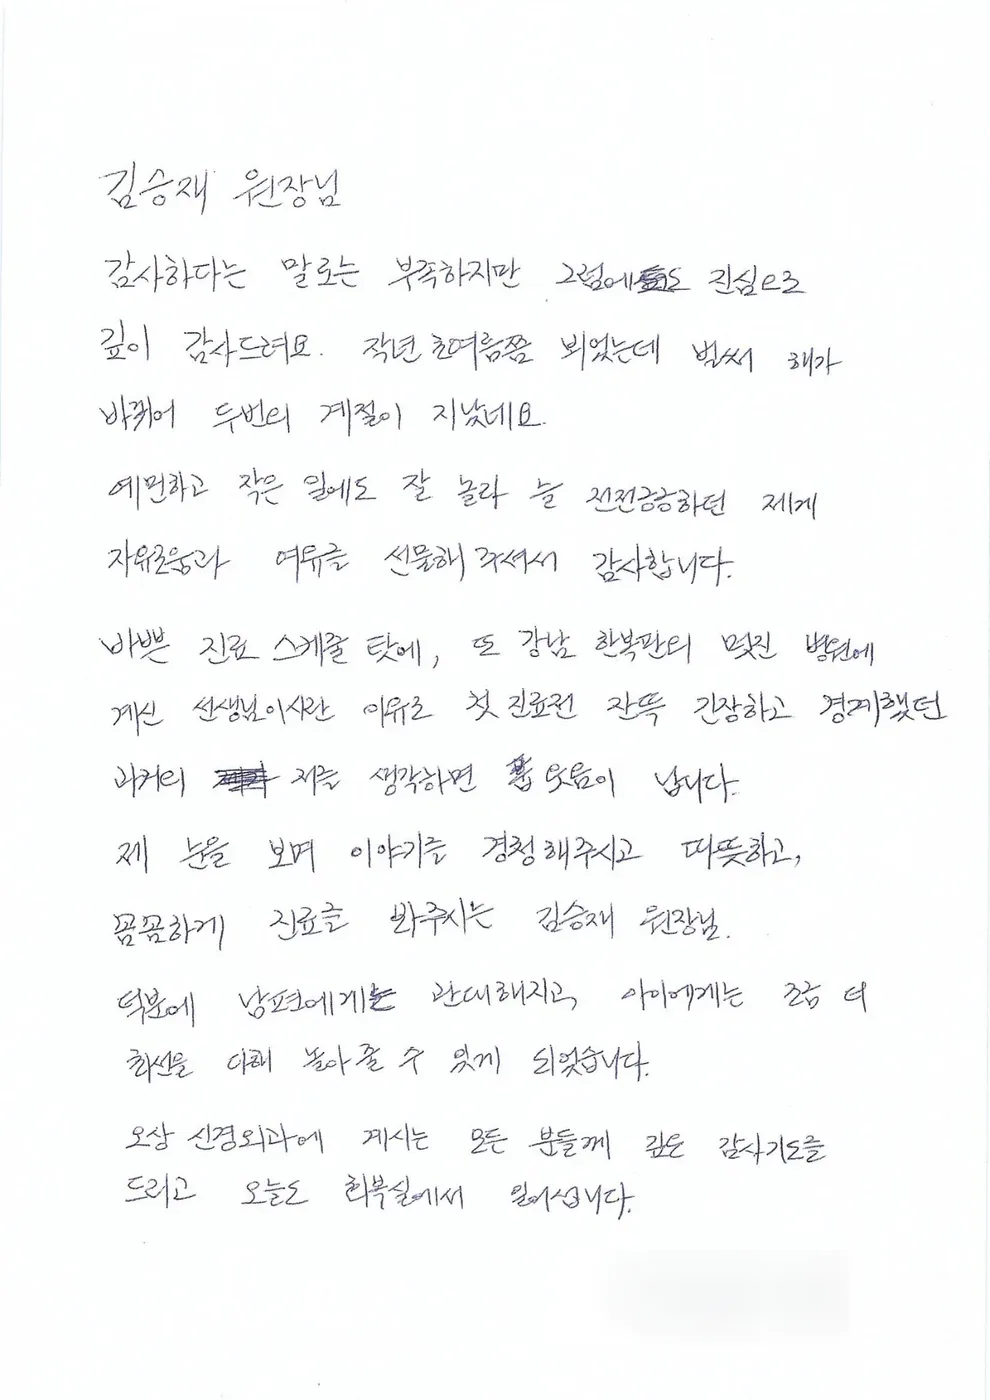 김승재 원장님
감사하다는 말로는 부족하지만 그럼에도 진심으로
깊이 감사드려요. 작년 초여름쯤 뵈었는데 벌써 해가
바뀌어 두번의 계절이 지났네요.
예민하고 작은 일에도 잘 놀라 늘 전전긍긍하던 제게
자유로움과 여유를 선물해 주셔서 감사합니다.
바쁜 진료 스케줄 탓에, 또 강남 한복판의 멋진 병원에
계신 선생님이시란 이유로 첫 진료전 잔뜩 긴장하고 경계했던
과거의 저를 생각하면 웃음이 납니다.
제 눈을 보며 이야기를 경청해주시고 따뜻하고,
꼼꼼하게 진료를 봐주시는 김승재 원장님.
덕분에 남편에게는 관대해지고, 아이에게는 조금 더
최선을 다해 놀아 줄 수 있게 되었습니다.
오상 신경외과에 계시는 모든 분들께 깊은 감사기도를
드리고 오늘도 회복실에서 일어섭니다.